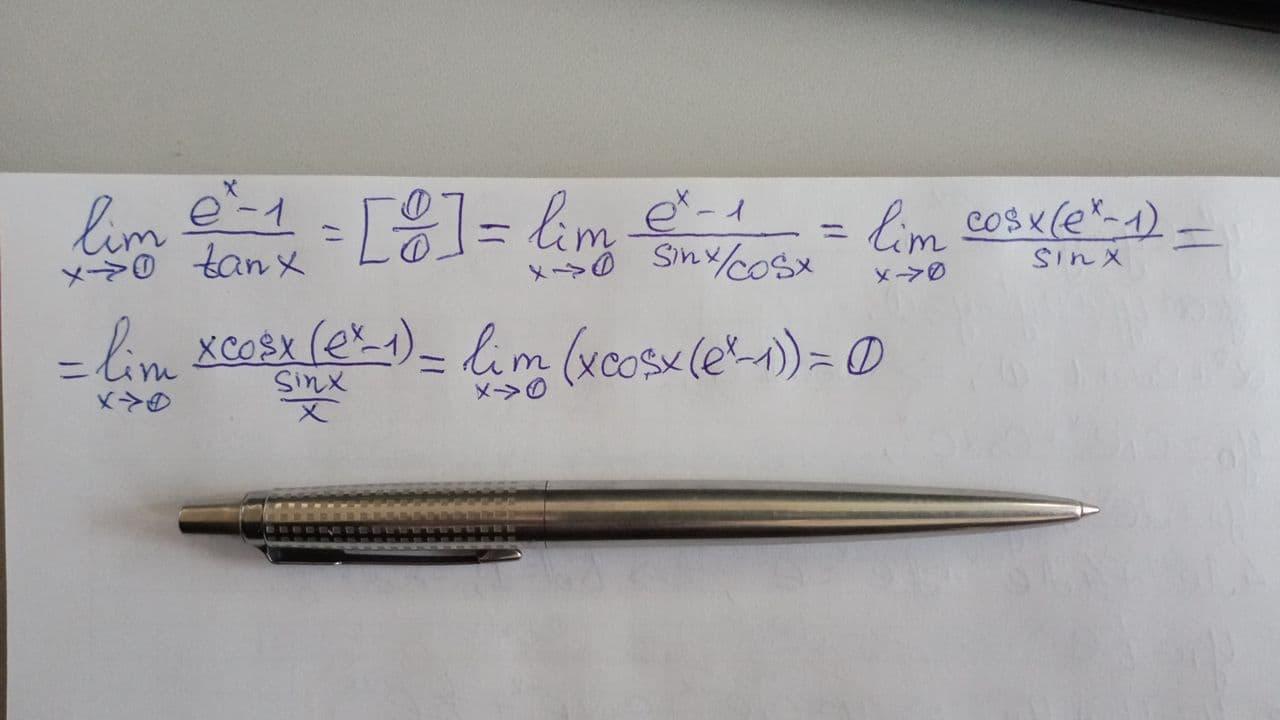 lim x→0 (e^x-1)/(tan x) = [0/0] = lim x→0 (e^x-1)/(sin x/cos x) = lim x→0 (cos x(e^x-1))/(sin x) =
= lim x→0 (x cos x (e^x-1))/((sin x)/x) = lim x→0 (x cos x (e^x-1)) = 0